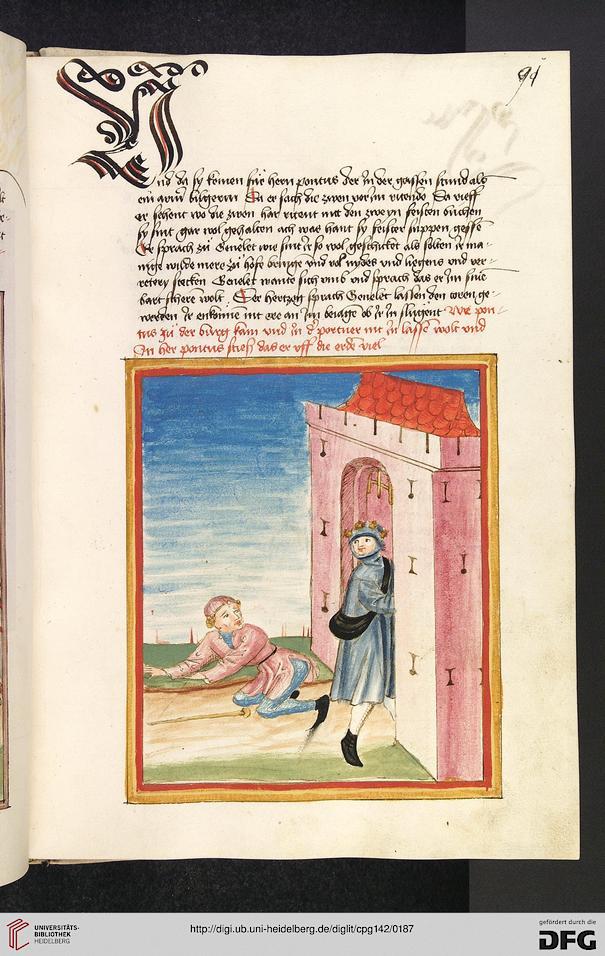 91
Vnd da sy komen für hern pontus der in der gassen stund als
ein arm bilgerin Da er sach die zwen vor im ritende Da rieff
er sehent wo die zwen har ritent mit den zweyn feisten büchen
sy sint gar wol gehalten ach was hant sy feister suppen gesse
Er sprach zü Genelet wie sint ir so wol geschicket als solten ir ma-
nige wilde mere zü hofe bringen und vol nydes und liegens und ver-
retery stecken Genelet wante sich umb und sprach das er im sine
bart schere wolt Der hertzen sprach Genelet lassen den toren ge-
werden ir enkünne nit ere an im beiage ob ir in slügent Wie pon-
tus zü der burg kam und in d portner nit in lasse wolt und
In her pontus stieß das er uff die erde viel
UNIVERSITÄTS-
BIBLIOTHEK
HEIDELBERG
http://digi.ub.uni-heidelberg.de/diglit/cpg142/0187
gefördert durch die
DFG